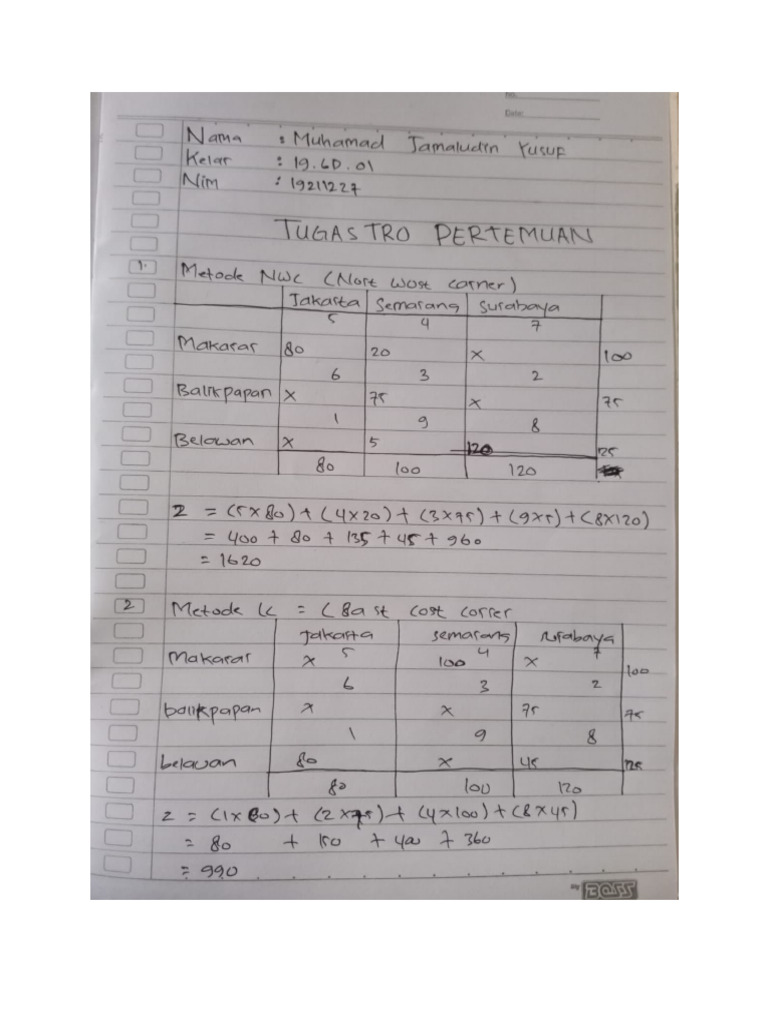 No.
Date:
Nama : Muhamad Jamaludin Yusuf
Kelas : 19.6D.01
Nim : 19211227
TUGAS TRO PERTEMUAN
1. Metode NWC (Nort West corner)
Jakarta Semarang Surabaya
5 4 7
Makasar 80 20 x 100
6 3 2
Balikpapan x 75 x 75
1 9 8
Belowan x 5 120 125
80 100 120
Z = (5x80) + (4x20) + (3x75) + (9x5) + (8x120)
= 400 + 80 + 135 + 45 + 960
= 1620
2 Metode LC = (Bast cost correr
Jakarta semarang surabaya
5 4 7
Makasar x 100 x 100
6 3 2
balikpapan x x 75 75
1 9 8
belawan 80 x 45 125
80 100 120
Z = (1x80) + (2x75) + (4x100) + (8x45)
= 80 + 150 + 400 + 360
= 990
by BOSS